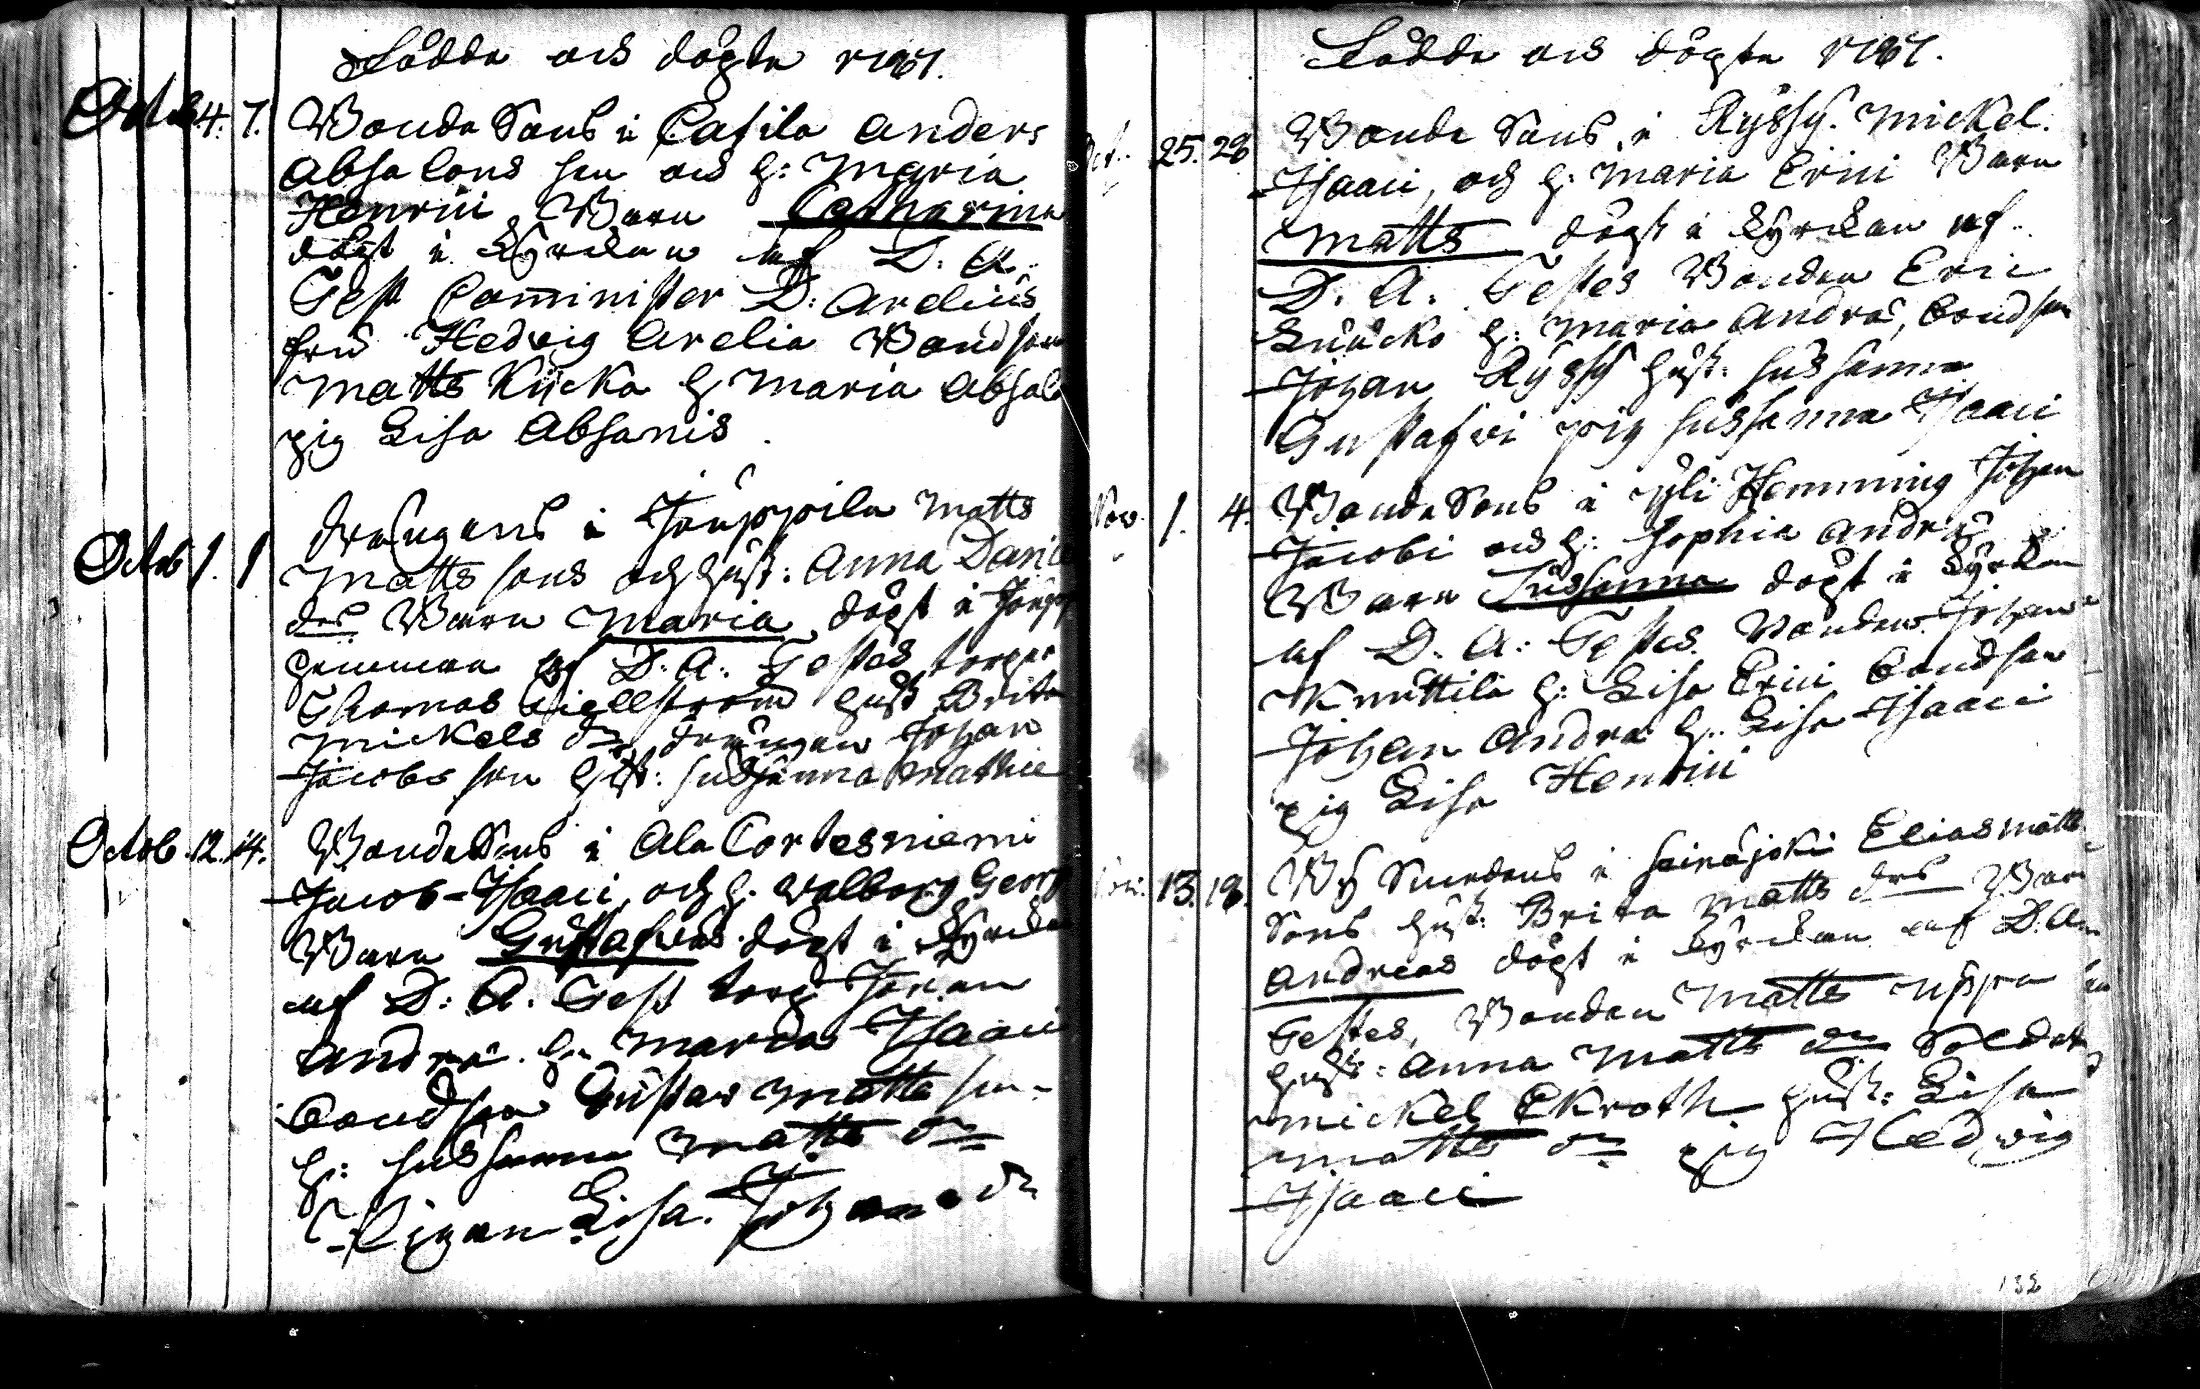 Födde och döpte 1767.
Octob. 4. 7. Bonde Sons i Casila Anders
Absalons son och h: Maria
Henrici Barn Catharina
döpt i Kyrckan af D. A.
Test Comminister D: Arelius
fru Hedvig Arelia Bondson
Matts Kücka h Maria Absal
pig Lisa Absanis.
Octob 1. 1 drängens i Jouppila Matts
Matts sons och hust: Anna Danie
drs Barn Maria döpt i Joupp
hemman af D. A: Testes torpar
Thomas Kiellström hust Brita
Mickels dr, drängen Johan
Jacobs son hust: Susanna Mathie
Octob. 12. 14. Bonde Sons i Ala Cortesniemi
Jacob Isaaci, och h. Walborg Georg
Barn Gustafvus döpt i Kyrcka
af D: A. Test torp Johan
Andræ h. Maria Isaaci
Bondson Gustav Matts son
h: Susanna Matts dr
Pigan Lisa Johans dr
Födde och döpte 1767.
Oct. 25. 28 Bonde Sons i Ryssy. Mickel
Isaaci, och h: Maria Erici Barn
Matts döpt i Kyrckan af
D. A. Testes Bonden Eric
Knücko h: Maria Andræ, Bondson
Johan Ryssy hust: Susanna
Gustafvi pig Susanna Isaaci
Nov. 1. 4. Bonde Sons i Yli Hemming Johan
Jacobi och h: Sophia Andræ
Barn Susanna döpt i Kyrckan
af D. A: Testes Bonden Johan
Knuttila h: Lisa Erici Bondson
Johan Andræ h: Lisa Isaaci
pig Lisa Henrici
Nov. 13. 18. By Smedens i Seinäjoki Elias Matts
Sons hust: Brita Matts drs Barn
Andreas döpt i Kyrckan af D. A.
Testes, Bonden Matts Uppa
hust: Anna Matts dr Soldat
Mickel Ekroth hust: Lisa
Matts dr pig Hedvig
Isaaci
132